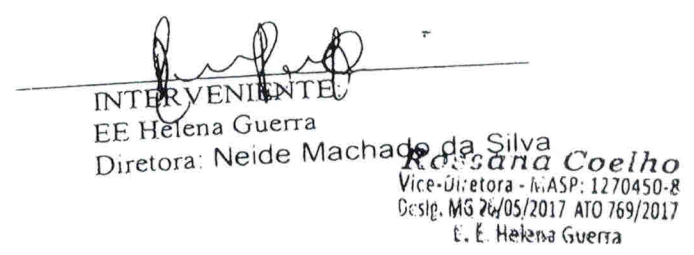 INTERVENIENTE:
EE Helena Guerra
Diretora: Neide Machado da Silva
Rossana Coelho
Vice-Diretora - MASP: 1270450-8
Desig. MG 26/05/2017 ATO 769/2017
E. E. Helena Guerra